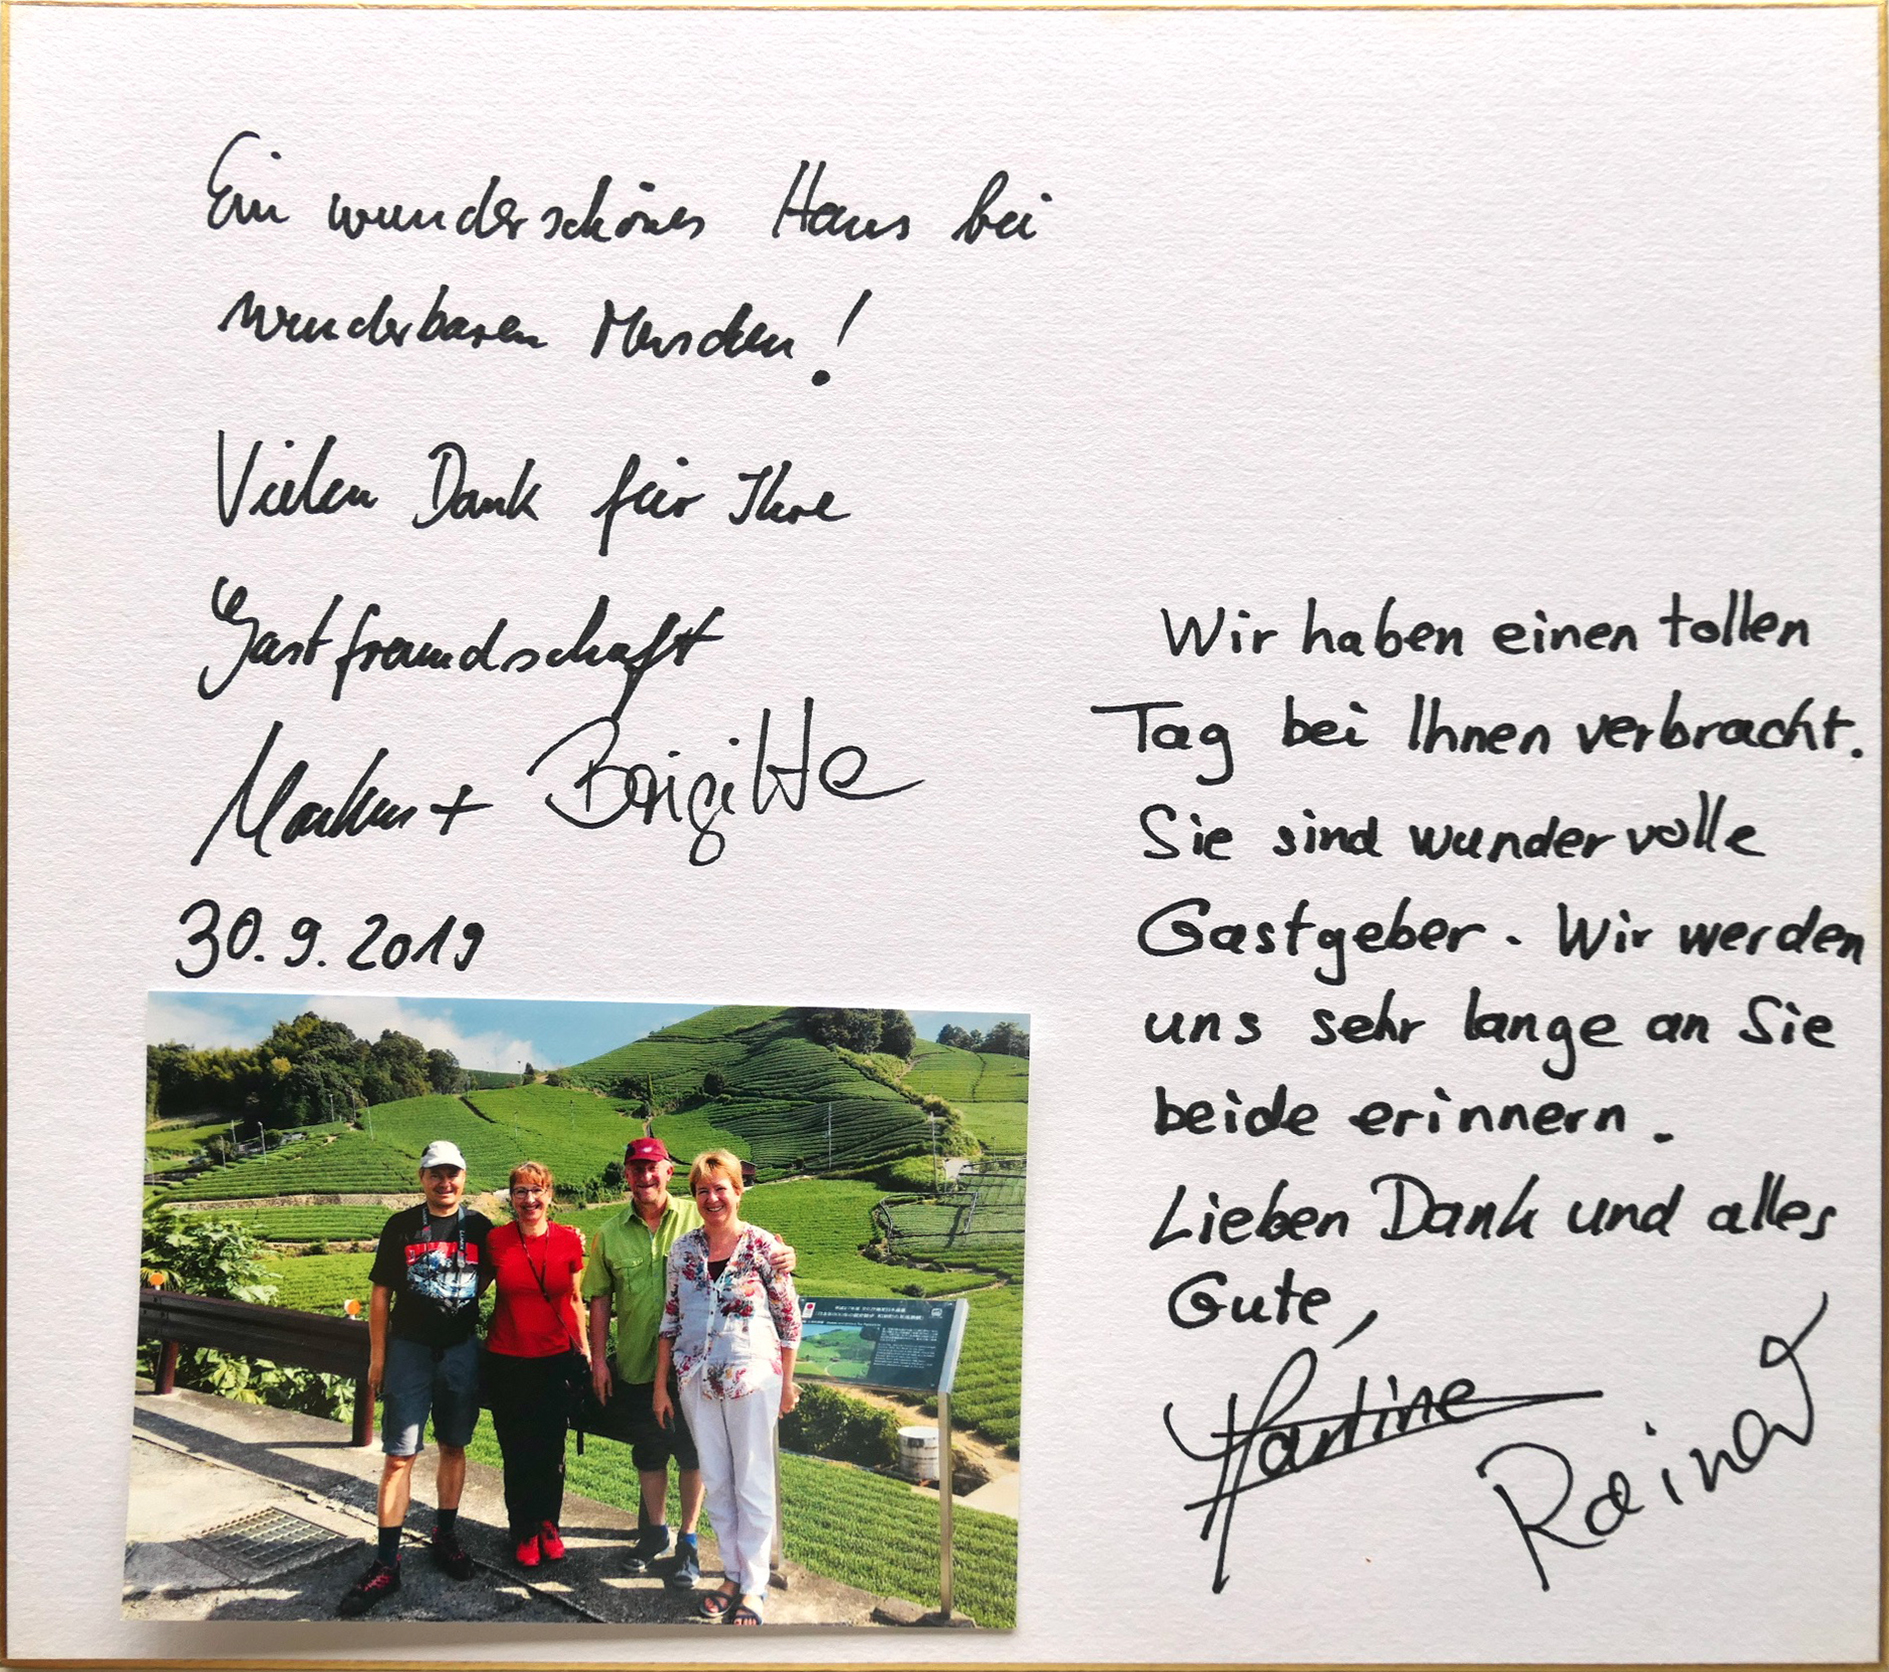 Ein wunderschönes Haus bei
wunderbaren Menschen!
Vielen Dank für Ihre
Gastfreundschaft
Markus + Brigitte
30.9.2019
Wir haben einen tollen
Tag bei Ihnen verbracht.
Sie sind wundervolle
Gastgeber. Wir werden
uns sehr lange an Sie
beide erinnern.
Lieben Dank und alles
Gute,
Martine
Rainer